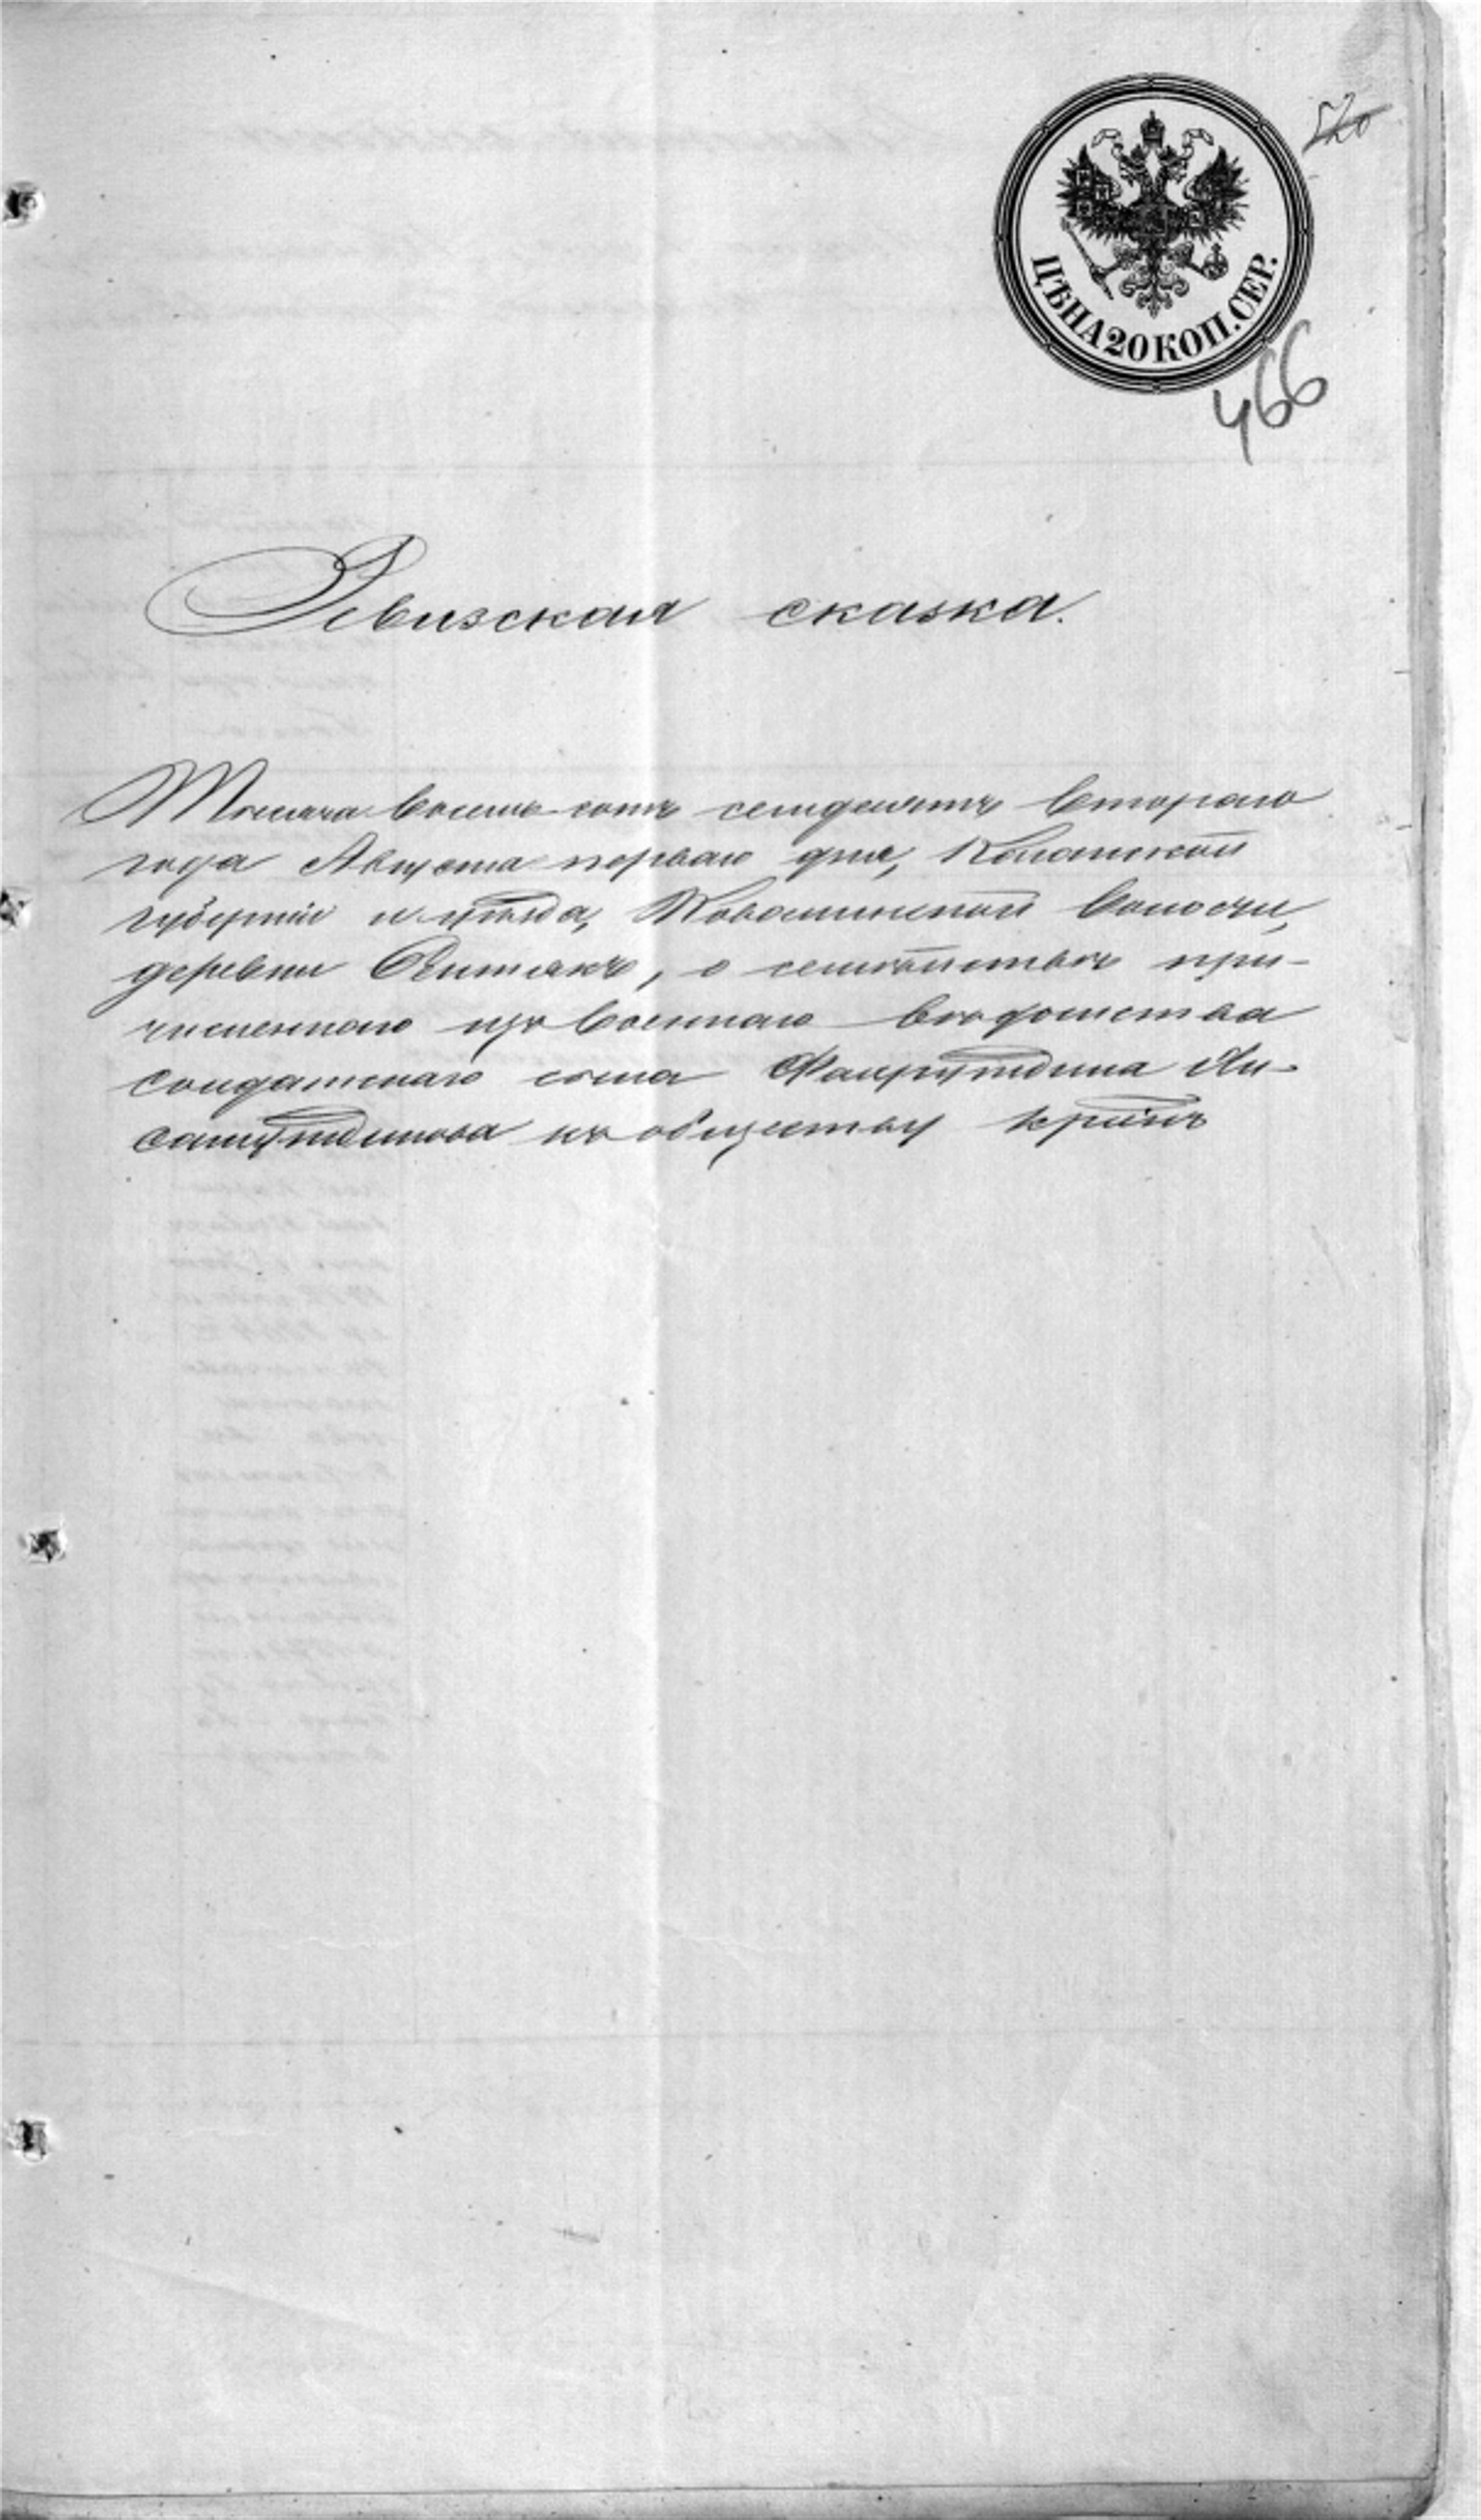 520
ЦѢНА 20 КОП. СЕР.
466
Ревизская сказка.
Тысяча восемь сотъ семдесятъ втораго
года Августа перваго дня, Казанской
губерніи и уѣзда, Ковалинской волости,
деревни , о семѣйствѣ при-
численнаго изъ военнаго вѣдомства
солдатскаго сына Фахрутдина Ги-
самутдинова къ обществу крест.